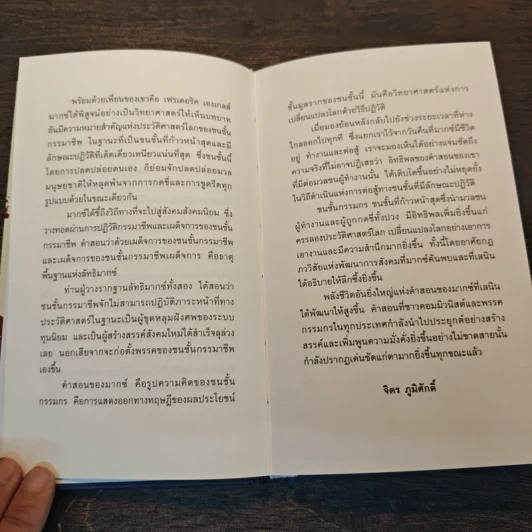 พร้อมด้วยเพื่อนของเขาคือ เฟรเดอริค เองเกลส์
มาร์กซ์ได้พิสูจน์อย่างเป็นวิทยาศาสตร์ให้เห็นบทบาท
อันมีความหมายสำคัญแห่งประวัติศาสตร์โลกของชนชั้น
กรรมาชีพ ในฐานะที่เป็นชนชั้นที่ก้าวหน้าสุดและมี
ลักษณะปฏิวัติที่เด็ดเดี่ยวเหนียวแน่นที่สุด ซึ่งชนชั้นนี้
โดยการปลดปล่อยตนเอง ก็ย่อมจักปลดปล่อยมวล
มนุษยชาติให้หลุดพ้นจากการกดขี่และการขูดรีดทุก
รูปแบบด้วยในขณะเดียวกัน
มาร์กซ์ได้ชี้ถึงวิถีทางที่จะไปสู่สังคมสังคมนิยม ซึ่ง
วางทอดผ่านการปฏิวัติกรรมาชีพและเผด็จการของชนชั้น
กรรมาชีพ คำสอนว่าด้วยเผด็จการของชนชั้นกรรมาชีพ
และเผด็จการของชนชั้นกรรมาชีพเผด็จการ คือธาตุ
พื้นฐานแห่งลัทธิมาร์กซ์
ท่านผู้วางรากฐานลัทธิมาร์กซ์ทั้งสอง ได้สอนว่า
ชนชั้นกรรมาชีพจักไม่สามารถปฏิบัติภาระหน้าที่ทาง
ประวัติศาสตร์ในฐานะเป็นผู้ขุดหลุมฝังศพของระบบ
ทุนนิยม และเป็นผู้สร้างสรรค์สังคมใหม่ได้สำเร็จลุล่วง
เลย นอกเสียจากจะก่อตั้งพรรคของชนชั้นกรรมาชีพ
เองขึ้น
คำสอนของมาร์กซ์ คือรูปความคิดของชนชั้น
กรรมกร คือการแสดงออกทางทฤษฎีของผลประโยชน์
ชั้นมูลรากของชนชั้นนี้ มันคือวิทยาศาสตร์แห่งการ
เปลี่ยนแปลงโลกด้วยวิธีปฏิวัติ
เมื่อมองย้อนหลังกลับไปยังช่วงระยะเวลาที่ห่าง
ไกลออกไปทุกที ซึ่งแยกเราไว้จากวันคืนที่มาร์กซ์มีชีวิต
อยู่ ทำงานและต่อสู้ เราจะมองเห็นได้อย่างแจ่มชัดถึง
ความจริงที่ไม่อาจปฏิเสธว่า อิทธิพลของคำสอนของเขา
ที่มีต่อมวลชนผู้ทำงานนั้น ได้เติบโตขึ้นอย่างไม่หยุดยั้ง
ในวิถีดำเนินแห่งการต่อสู้ทางชนชั้นที่มีลักษณะปฏิวัติ
ชนชั้นกรรมกร ชนชั้นที่ก้าวหน้าสุดซึ่งนำมวลชน
ผู้ทำงานและผู้ถูกกดขี่ทั้งปวง มีอิทธิพลเพิ่มยิ่งขึ้นแก่
ครรลองประวัติศาสตร์โลก เปลี่ยนแปลงโลกอย่างเอาการ
เอางานและมีความสำนึกมากยิ่งขึ้น ทั้งนี้โดยอาศัยกฎ
ภววิสัยแห่งพัฒนาการสังคมที่มาร์กซ์ค้นพบและที่เลนิน
ได้อธิบายให้ลึกซึ้งยิ่งขึ้น
พลังชีวิตอันยิ่งใหญ่แห่งคำสอนของมาร์กซ์ที่เลนิน
ได้พัฒนาให้สูงขึ้น คำสอนที่ชาวคอมมิวนิสต์และพรรค
กรรมกรในทุกประเทศกำลังนำไปประยุกต์อย่างสร้าง
สรรค์และเพิ่มพูนความมั่งคั่งยิ่งขึ้นอย่างไม่ขาดสายนั้น
กำลังปรากฏเด่นชัดแก่ตามากยิ่งขึ้นทุกขณะแล้ว
จิตร ภูมิศักดิ์